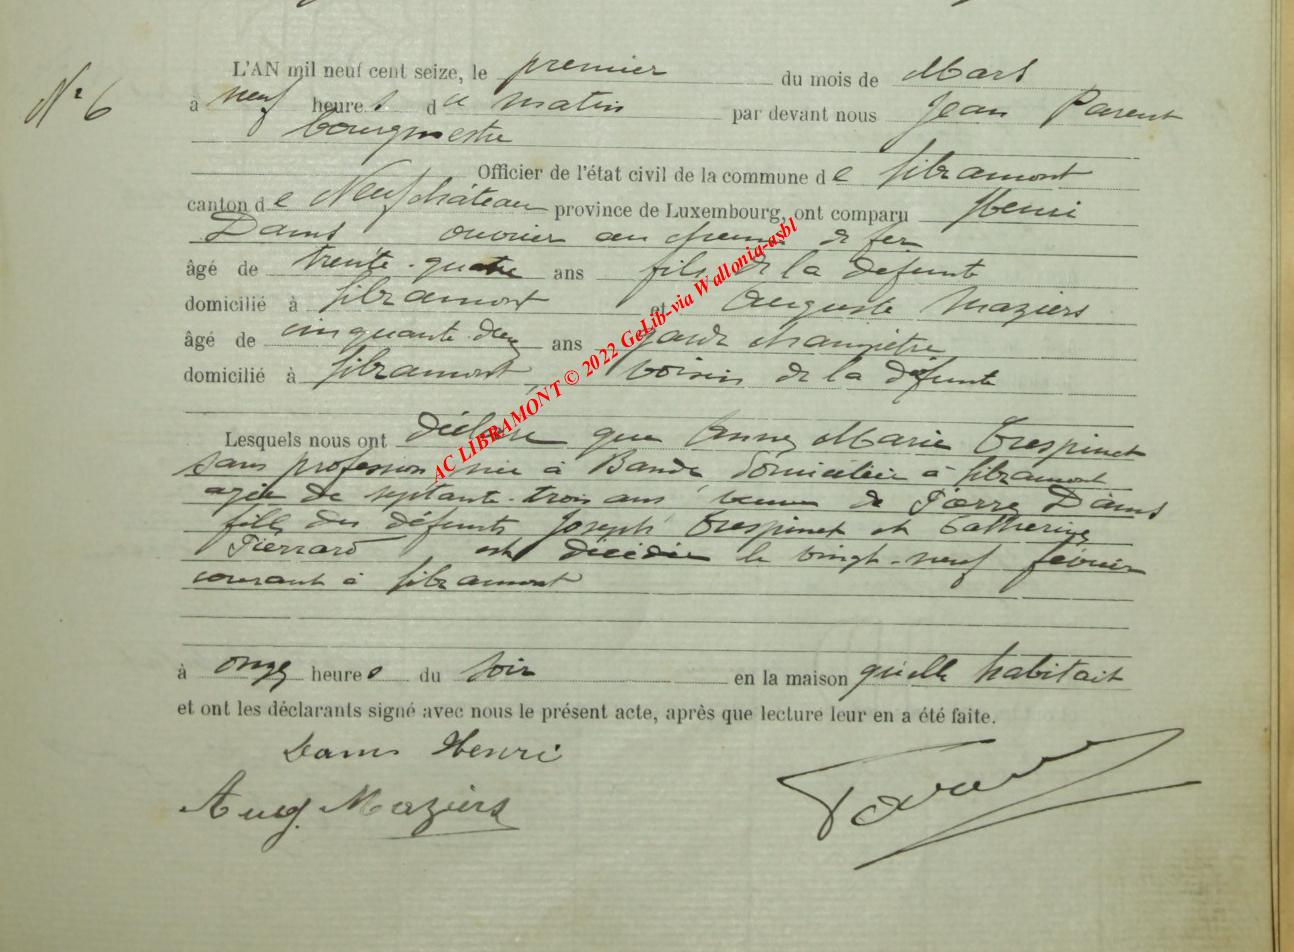 N° 6
L'AN mil neuf cent seize, le premier du mois de Mars
à neuf heures du matin par devant nous Jean Parent
bourgmestre
Officier de l'état civil de la commune de Libramont
canton de Neufchâteau province de Luxembourg, ont comparu Henri
Dams ouvrier au chemin de fer
âgé de trente-quatre ans fils de la défunte
domicilié à Libramont et Auguste Maziers
âgé de cinquante-deux ans garde champêtre
domicilié à Libramont, voisin de la défunte
Lesquels nous ont déclaré que Anne Marie Trespinet
sans profession, née à Bande domiciliée à Libramont
agée de septante-trois ans veuve de Pierre Dams
fille des défunts Joseph Trespinet et Catherine
Pierrard est décédée le vingt-neuf février
courant à Libramont
à onze heures du soir en la maison qu'elle habitait
et ont les déclarants signé avec nous le présent acte, après que lecture leur en a été faite.
Dams Henri
Aug. Maziers
Parent
AC LIBRAMONT © 2022 GeLib-via Wallonia-asbl